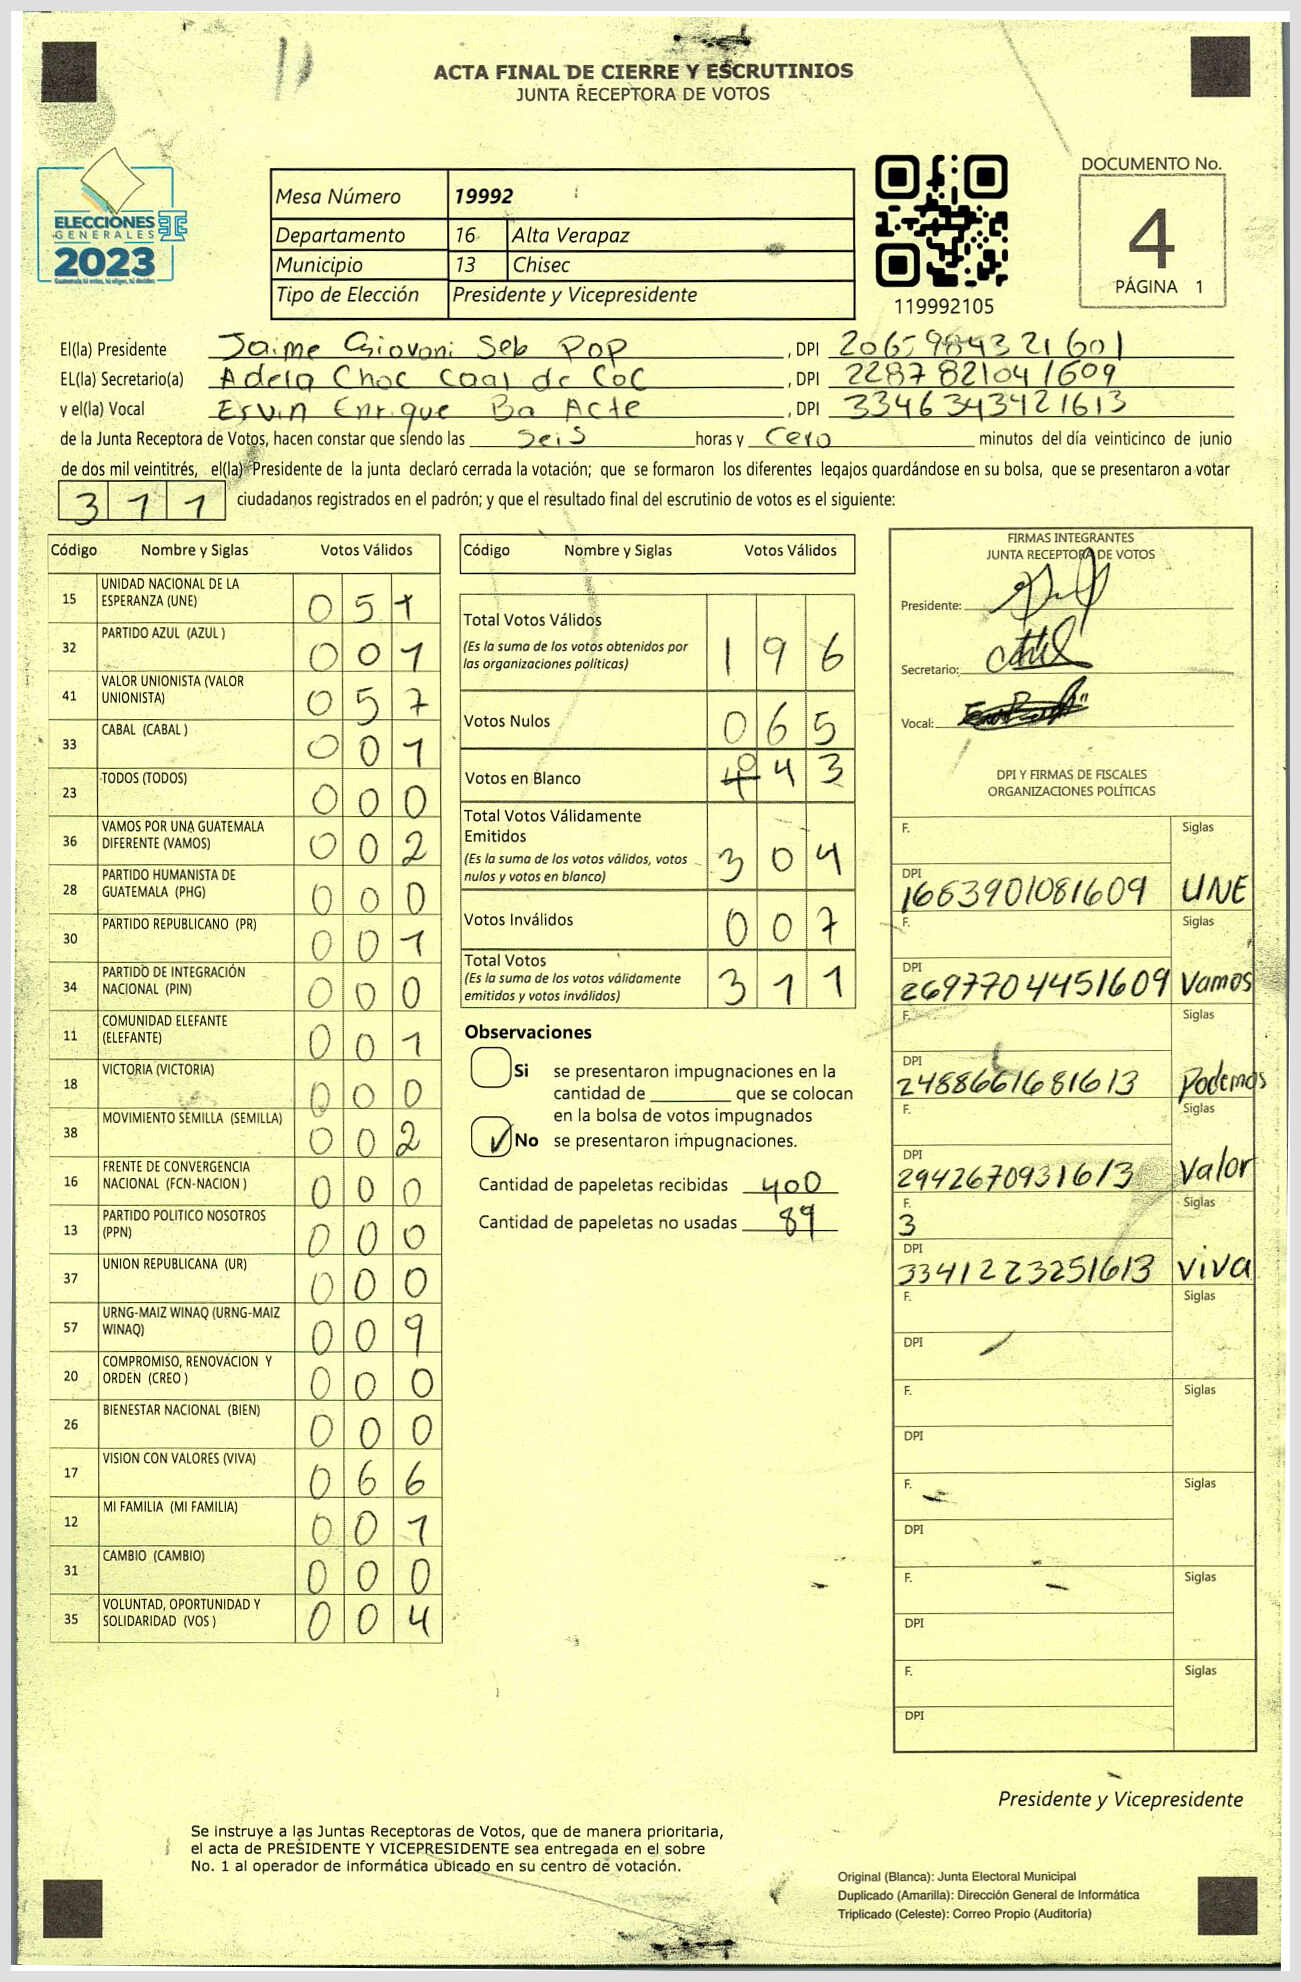 ACTA FINAL DE CIERRE Y ESCRUTINIOS
JUNTA RECEPTORA DE VOTOS
ELECCIONES
GENERALES
2023
Mesa Número 19992
Departamento 16 Alta Verapaz
Municipio 13 Chisec
Tipo de Elección Presidente y Vicepresidente
119992105
DOCUMENTO No.
4
PÁGINA 1
El(la) Presidente Jaime Giovani Seb Pop , DPI
EL(la) Secretario(a) Adela Choc Caal de Coc , DPI 2287821041609
y el(la) Vocal Ervin Enrique Ba Acte , DPI 3346343421613
de la Junta Receptora de Votos, hacen constar que siendo las seis horas y cero minutos del día veinticinco de junio
de dos mil veintitrés, el(la) Presidente de la junta declaró cerrada la votación; que se formaron los diferentes legajos guardándose en su bolsa, que se presentaron a votar
311 ciudadanos registrados en el padrón; y que el resultado final del escrutinio de votos es el siguiente:
Código Nombre y Siglas Votos Válidos
15 UNIDAD NACIONAL DE LA ESPERANZA (UNE) 051
32 PARTIDO AZUL (AZUL ) 001
41 VALOR UNIONISTA (VALOR UNIONISTA) 057
33 CABAL (CABAL ) 001
23 TODOS (TODOS) 000
36 VAMOS POR UNA GUATEMALA DIFERENTE (VAMOS) 002
28 PARTIDO HUMANISTA DE GUATEMALA (PHG) 000
30 PARTIDO REPUBLICANO (PR) 001
34 PARTIDO DE INTEGRACIÓN NACIONAL (PIN) 000
11 COMUNIDAD ELEFANTE (ELEFANTE) 001
18 VICTORIA (VICTORIA) 000
38 MOVIMIENTO SEMILLA (SEMILLA) 002
16 FRENTE DE CONVERGENCIA NACIONAL (FCN-NACION ) 000
13 PARTIDO POLITICO NOSOTROS (PPN) 000
37 UNION REPUBLICANA (UR) 000
57 URNG-MAIZ WINAQ (URNG-MAIZ WINAQ) 009
20 COMPROMISO, RENOVACION Y ORDEN (CREO ) 000
26 BIENESTAR NACIONAL (BIEN) 000
17 VISION CON VALORES (VIVA) 066
12 MI FAMILIA (MI FAMILIA) 001
31 CAMBIO (CAMBIO) 000
35 VOLUNTAD, OPORTUNIDAD Y SOLIDARIDAD (VOS ) 004
Código Nombre y Siglas Votos Válidos
Total Votos Válidos 196
(Es la suma de los votos obtenidos por
las organizaciones políticas)
Votos Nulos 065
Votos en Blanco 043
Total Votos Válidamente
Emitidos 304
(Es la suma de los votos válidos, votos
nulos y votos en blanco)
Votos Inválidos 007
Total Votos 311
(Es la suma de los votos válidamente
emitidos y votos inválidos)
Observaciones
Si se presentaron impugnaciones en la
cantidad de ________ que se colocan
en la bolsa de votos impugnados
No se presentaron impugnaciones.
Cantidad de papeletas recibidas 400
Cantidad de papeletas no usadas 89
FIRMAS INTEGRANTES
JUNTA RECEPTORA DE VOTOS
Presidente:
Secretario:
Vocal:
DPI Y FIRMAS DE FISCALES
ORGANIZACIONES POLÍTICAS
F. Siglas
DPI 1663901081609 UNE
F. Siglas
DPI 2697704451609 Vamos
F. Siglas
DPI 2488661681613 Podemos
F. Siglas
DPI 2942670931613 Valor
F. Siglas
3
DPI 3341223251613 viva
F. Siglas
DPI
F. Siglas
DPI
F. Siglas
DPI
F. Siglas
DPI
F. Siglas
DPI
Presidente y Vicepresidente
Se instruye a las Juntas Receptoras de Votos, que de manera prioritaria,
el acta de PRESIDENTE Y VICEPRESIDENTE sea entregada en el sobre
No. 1 al operador de informática ubicado en su centro de votación.
Original (Blanca): Junta Electoral Municipal
Duplicado (Amarilla): Dirección General de Informática
Triplicado (Celeste): Correo Propio (Auditoría)